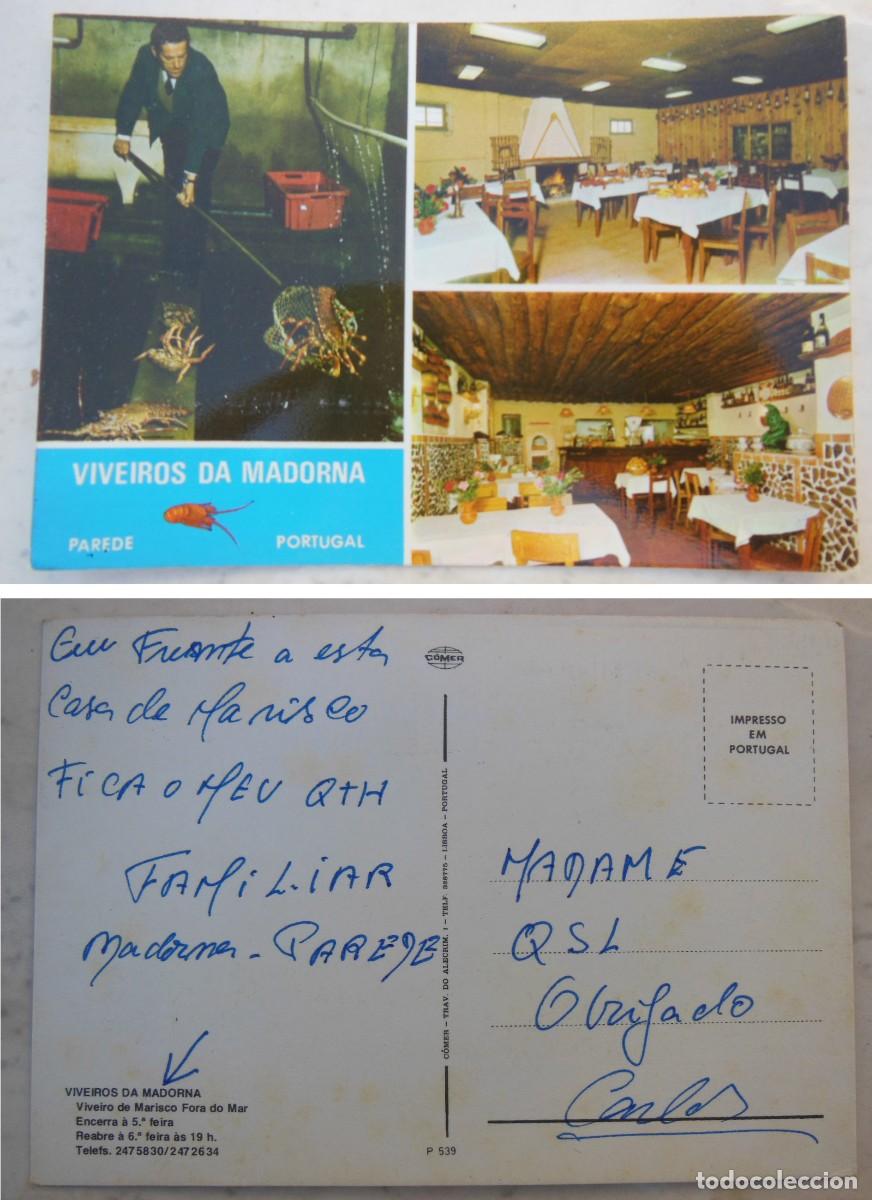 VIVEIROS DA MADORNA
PAREDE PORTUGAL
Em Frente a esta
Casa de Marisco
FICA O MEU QTH
FAMILIAR
Madorna - PAREDE
VIVEIROS DA MADORNA
Viveiro de Marisco Fora do Mar
Encerra à 5.ª feira
Reabre à 6.ª feira às 19 h.
Telefs. 2475830/2472634
CÓMER
CÓMER - TRAV. DO ALECRIM, 1 - TELF. 328775 - LISBOA - PORTUGAL
P 539
IMPRESSO
EM
PORTUGAL
MADAME
QSL
Obrigado
Carlos
todocoleccion